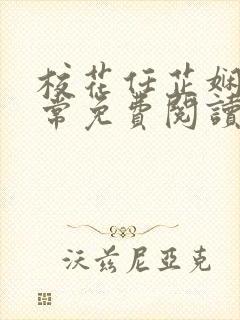 校花任芷娴
常免費閱讀
沃兹尼亚克